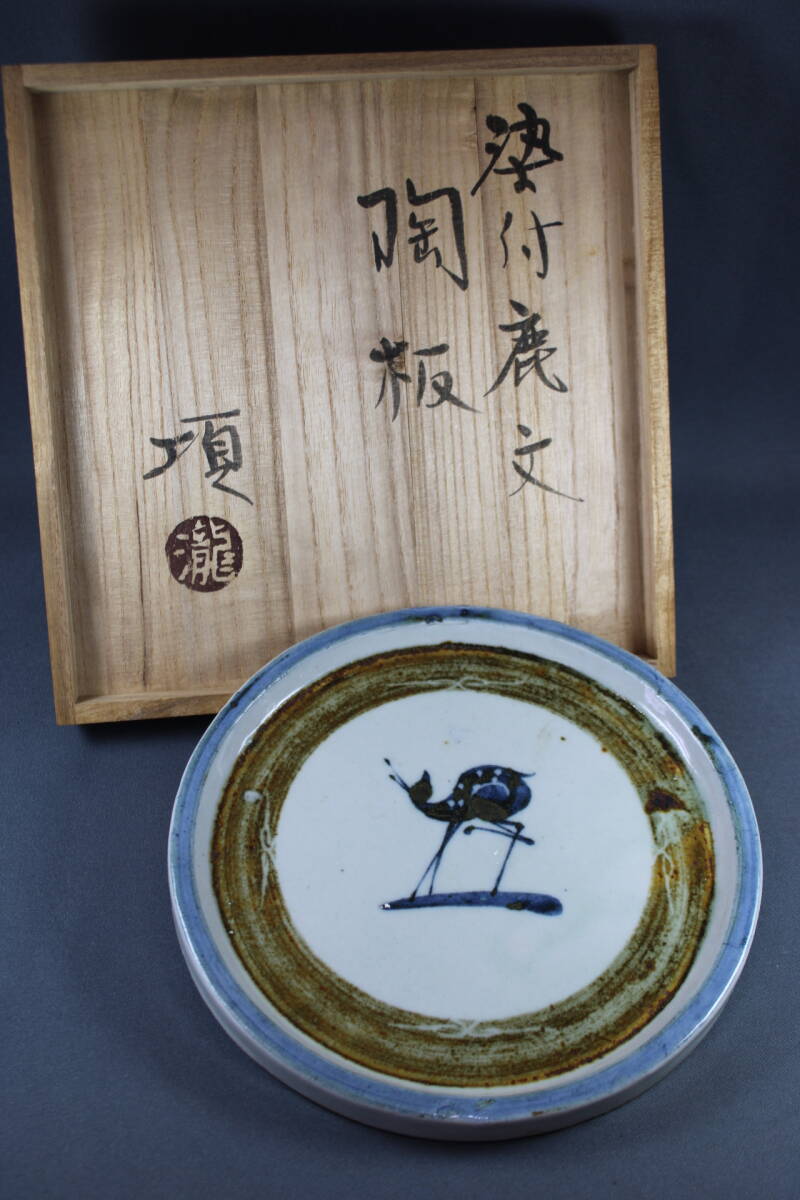 染付鹿文
陶板
項
瀧